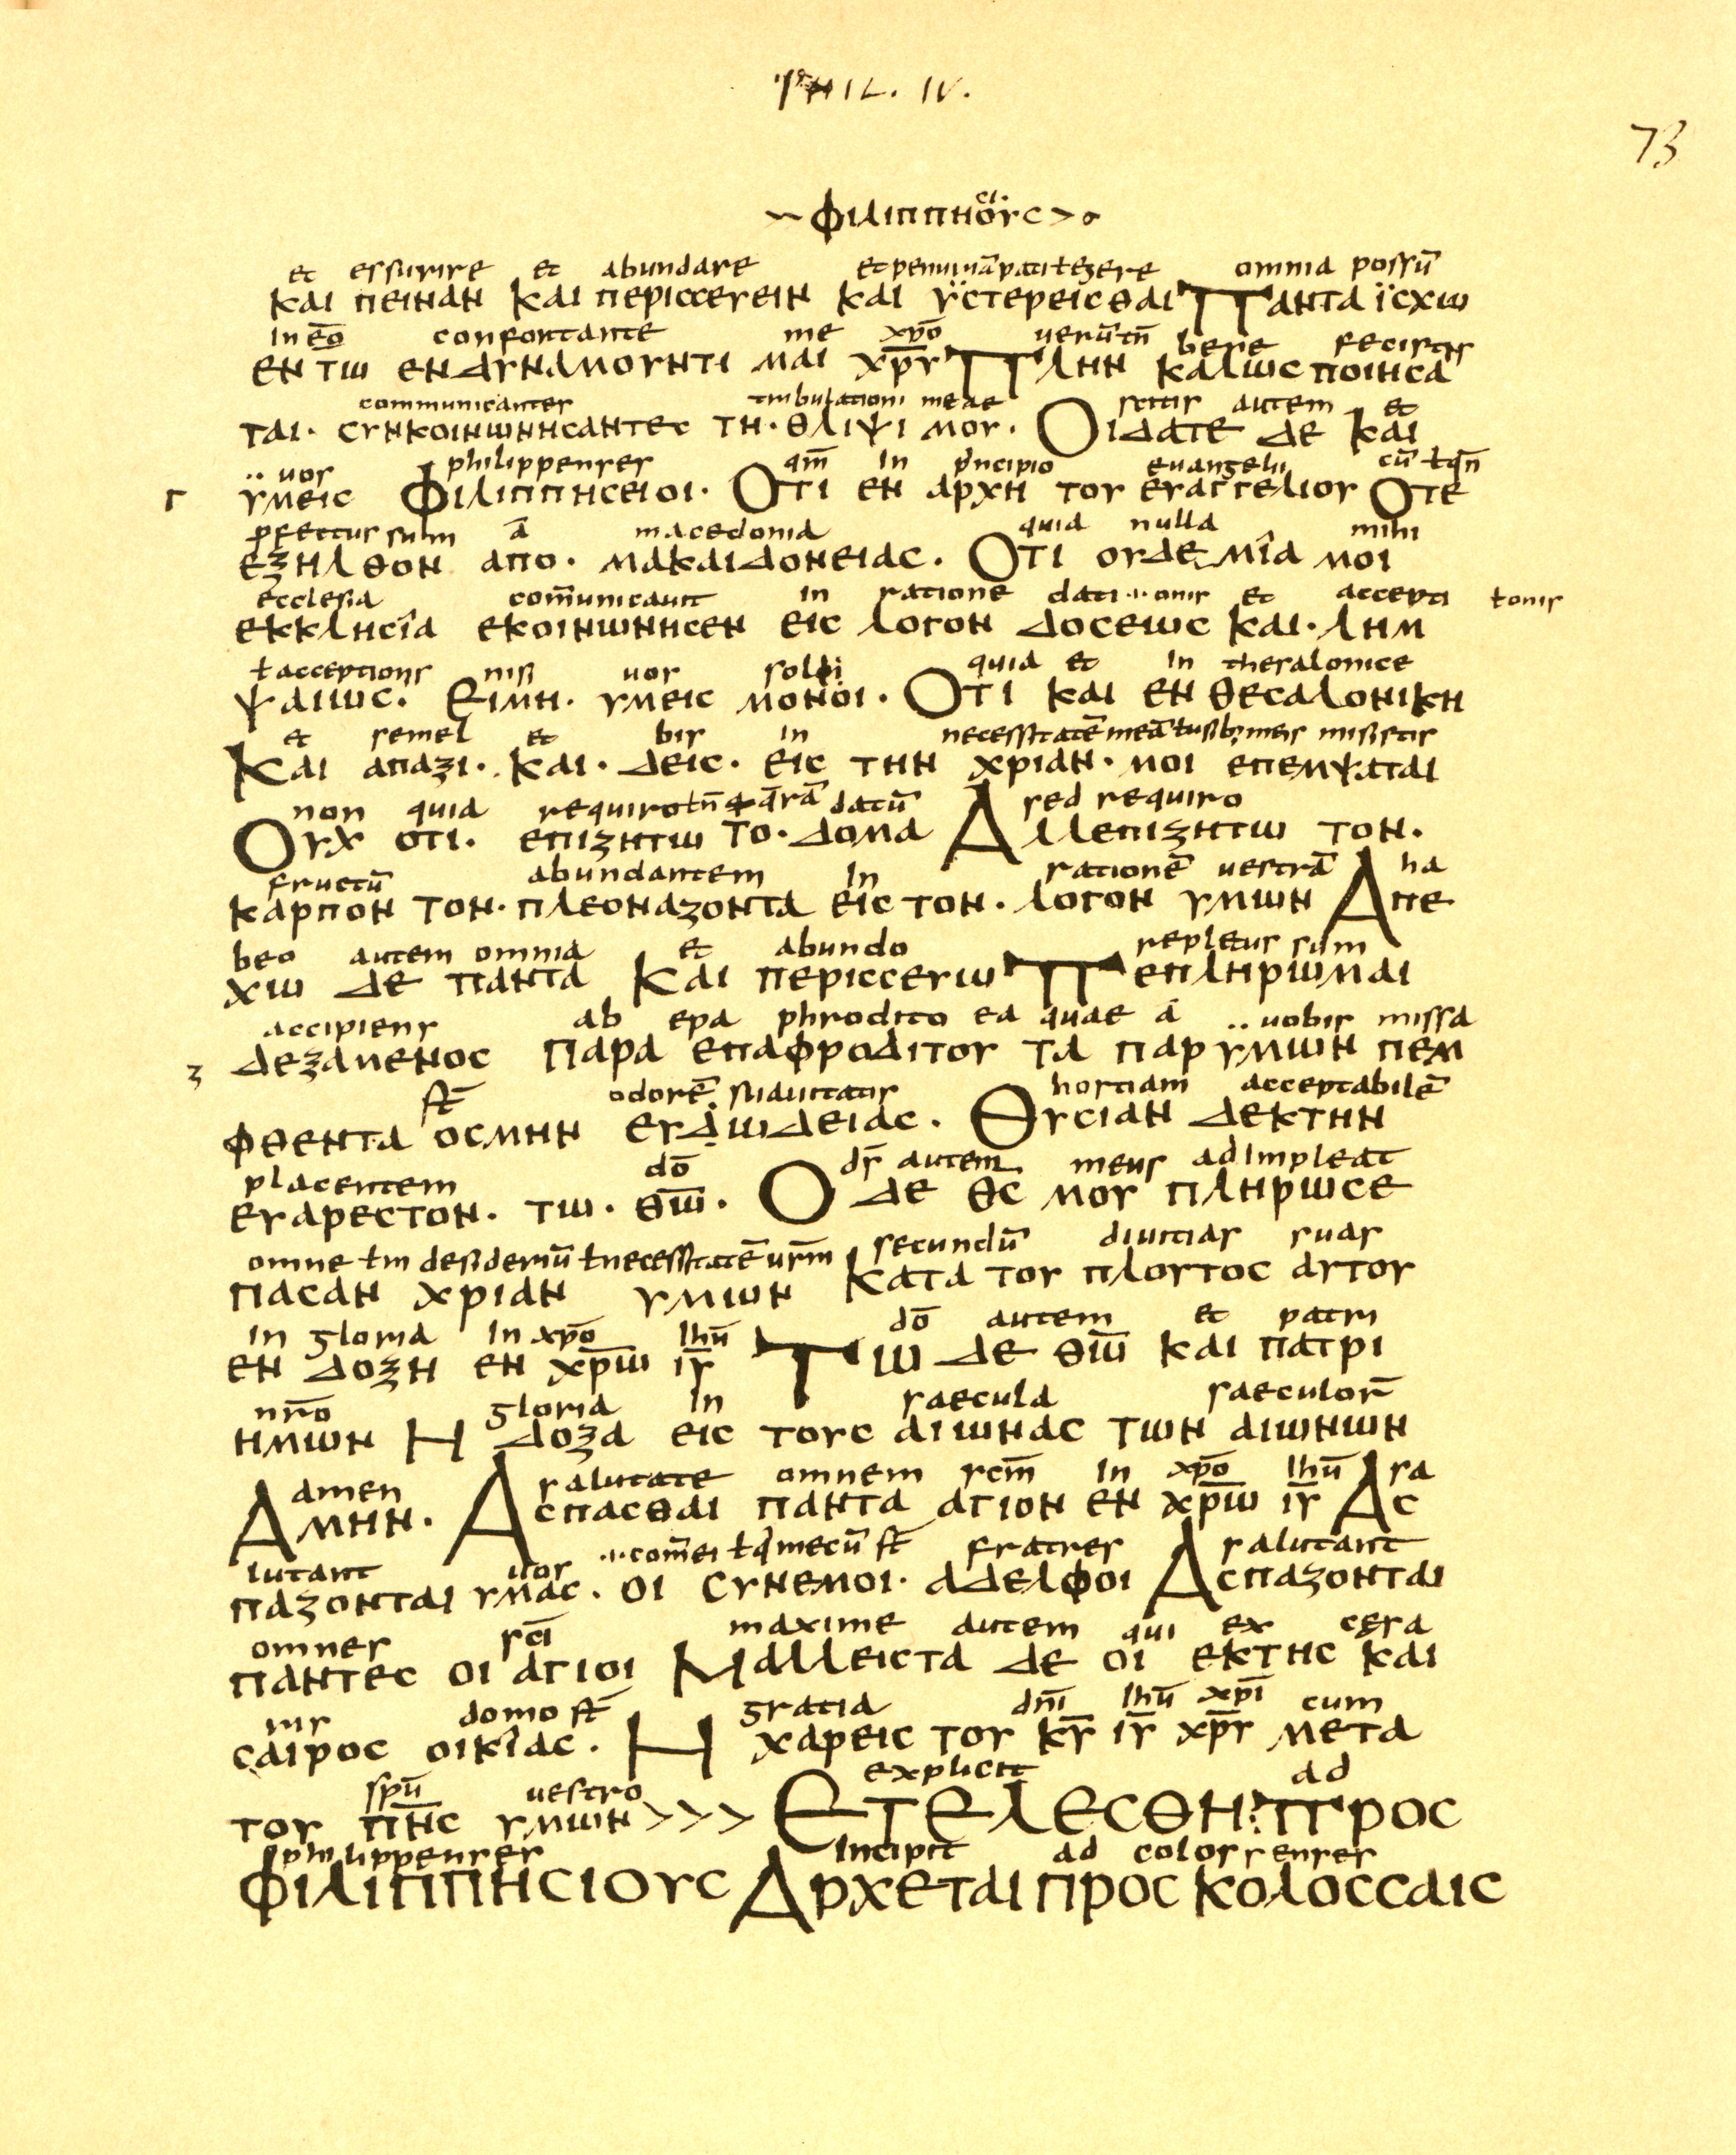 PHIL. IV.
73
ci.
~ φιλιππηουc > σ
et essurire et abundare et penuriā pati ł egere omnia possū
και πειναν και περιccευειν και ϋcτερειcθαι Παντα ϊcχω
in eō confortante me xp̄o uerūtn̄ bene fecistis
εν τω ενδυναμουντι μαι χ̅ρ̅υ̅ Πλην καλωc ποιηcα
communicantes tribulationi meae scitis autem et
ται· cυνκοινωνηcαντεc τη· θλιψι μου· Οιδατε δε και
·· uos philippenses qm̄ in p̓ncipio euangelii cū ł qn̄
Γ υμειc Φιλιππηcειοι· Οτι εν αρχη του ευαγγελιου Οτε
pfectus sum ā macedonia quia nulla mihi
εξηλθον απο· μακαιδονειαc· Οτι ουδε μια μοι
ecclesia com̄unicauit in ratione dati··onis et accepti tonis
εκκληcια εκοινωνηcεν ειc λογον δοcεωc και· λημ
ł acceptionis nisi uos soli quia et in thesalonice
ψαιωc· Ειμη· υμειc μονοι· Οτι και εν θεcαλονικη
et semel et bis in necessitatē meā ł usib; meis misistis
Και απαξι· και· δειc· ειc την χριαν· μοι επεμψαται
non quia requiro datū sed requiro
Ουχ οτι· επιζητω το· δομα Αλλεπιζητω τον·
fructū abundantem in rationē uestrā ha
καρπον τον· πλεοναζοντα ειc τον· λογον υμων Απε
beo autem omnia et abundo repletus sum
χω δε παντα Και περιccευω Πεπληρωμαι
accipiens ab epa phrodito ea quae a ·· uobis missa
ζ δεξαμενοc Παρα επαφροδιτου τα παρ υμων πεμ
st̄ odorē suauitatis hostiam acceptabilē
φθεντα οcμην ευδωδειαc· Θυcιαν δεκτην
placentem dō ds̄ autem meus adimpleat
ευαρεcτον· τω· θ̅ω̅· Ο δε θc μου πληρωcε
omne ł in desideriū ł necessitatē urm̄ secundū diuitias suas
παcαν χριαν υμων Κατα του πλουτοc αυτου
in gloria in xp̄o ihū dō autem et patri
εν δοξη εν χ̅ρ̅ω̅ ι̅υ̅ Τω δε θ̅ω̅ και πατρι
nr̄o gloria in saecula saeculor̄
ημων Η δοξα ειc τουc αιωναc των αιωνων
amen salutate omnem scm̄ in xp̄o ihū sa
Αμην· Αcπαcθαι παντα αγιον εν χ̅ρ̅ω̅ ι̅υ̅ Αc
lutant uos ··· com̄ei ł q̓ mecū st̄ fratres salutant
παζονται υμαc· οι cυνεμοι· αδελφοι Αcπαζονται
omnes sc̄i maxime autem qui ex cęsa
παντεc οι αγιοι Μαλλειcτα δε οι εκτηc και
ris domo st̄ gratia dn̄i ihū xp̄i cum
cαιροc οικιαc· Η χαρειc του κ̅υ̅ ι̅υ̅ χ̅ρ̅υ̅ μετα
spū uestro explicit ad
του π̅ν̅c υμων >>> Ετελεcθη: προc
philippenses incipit ad colossenses
φιλιππηcιουc Αρχεται προc κολοccαιc